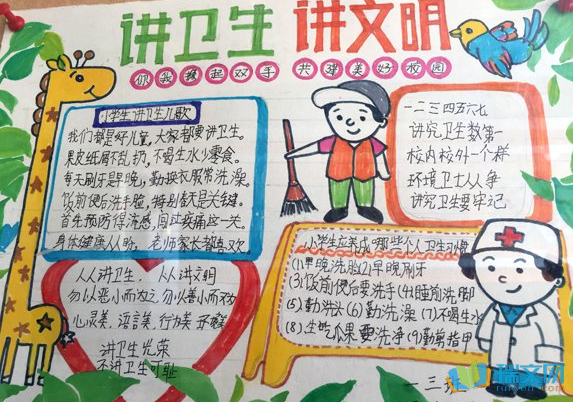 讲卫生 讲文明
你我携起双手 共建美好校园
小学生讲卫生儿歌
我们都是好儿童,大家都要讲卫生。
果皮纸屑不乱扔,不喝生水少零食。
每天刷牙是早晚,勤换衣服常洗澡。
饭前便后洗手脸,特别春天是关键。
首先预防得流感,闯过疾病这一关。
身体健康人人盼,老师家长都喜欢。
一二三四五六七
讲究卫生数第一
校内校外一个样
环境卫士人人争
讲究卫生要牢记
人人讲卫生,人人讲文明
勿以恶小而为之,勿以善小而不为
心灵美,语言美,行为美
讲卫生光荣
不讲卫生可耻
小学生应养成哪些个人卫生习惯
(1)早晚洗脸(2)早晚刷牙
(3)饭前便后要洗手(4)睡前洗脚
(5)勤洗头(6)勤洗澡(7)不喝生水
(8)生吃瓜果要洗净(9)勤剪指甲
一三班
瑞文网
ruiwen.com